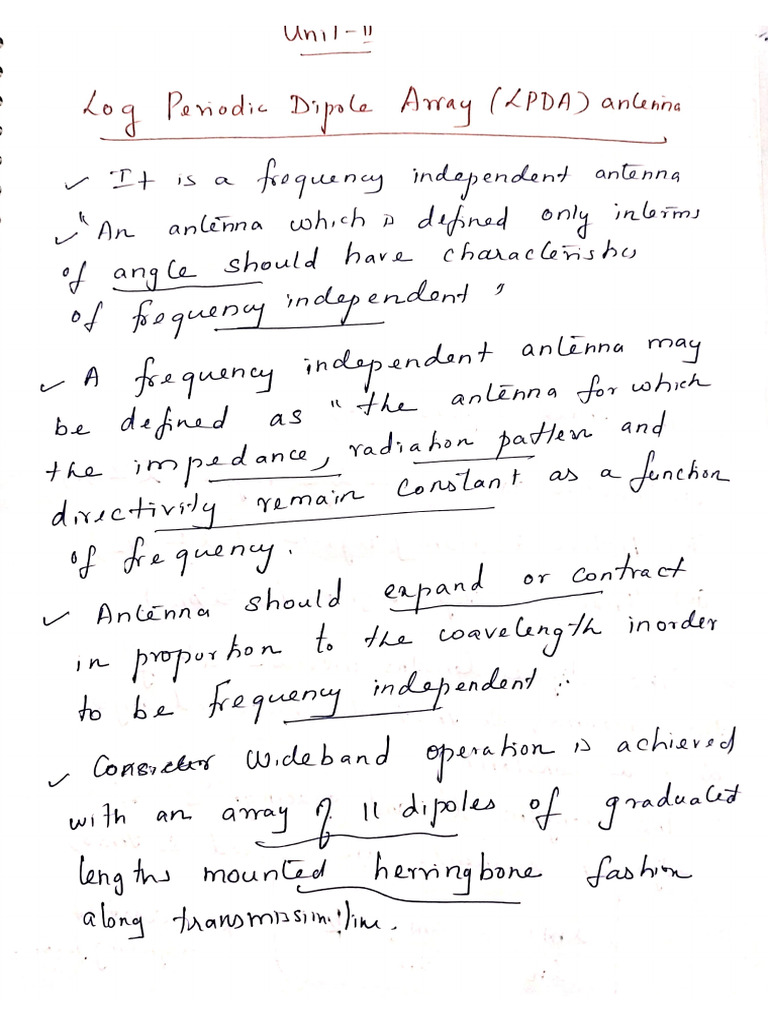 Unit-II
Log Periodic Dipole Array (LPDA) antenna
✓ It is a frequency independent antenna
✓ "An antenna which is defined only interms
of angle should have characteristics
of frequency independent"
✓ A frequency independent antenna may
be defined as "the antenna for which
the impedance, radiation pattern and
directivity remain constant as a function
of frequency.
✓ Antenna should expand or contract
in proportion to the wavelength inorder
to be frequency independent.
✓ Wideband operation is achieved
with an array of 11 dipoles of graduated
lengths mounted herringbone fashion
along transmission line.